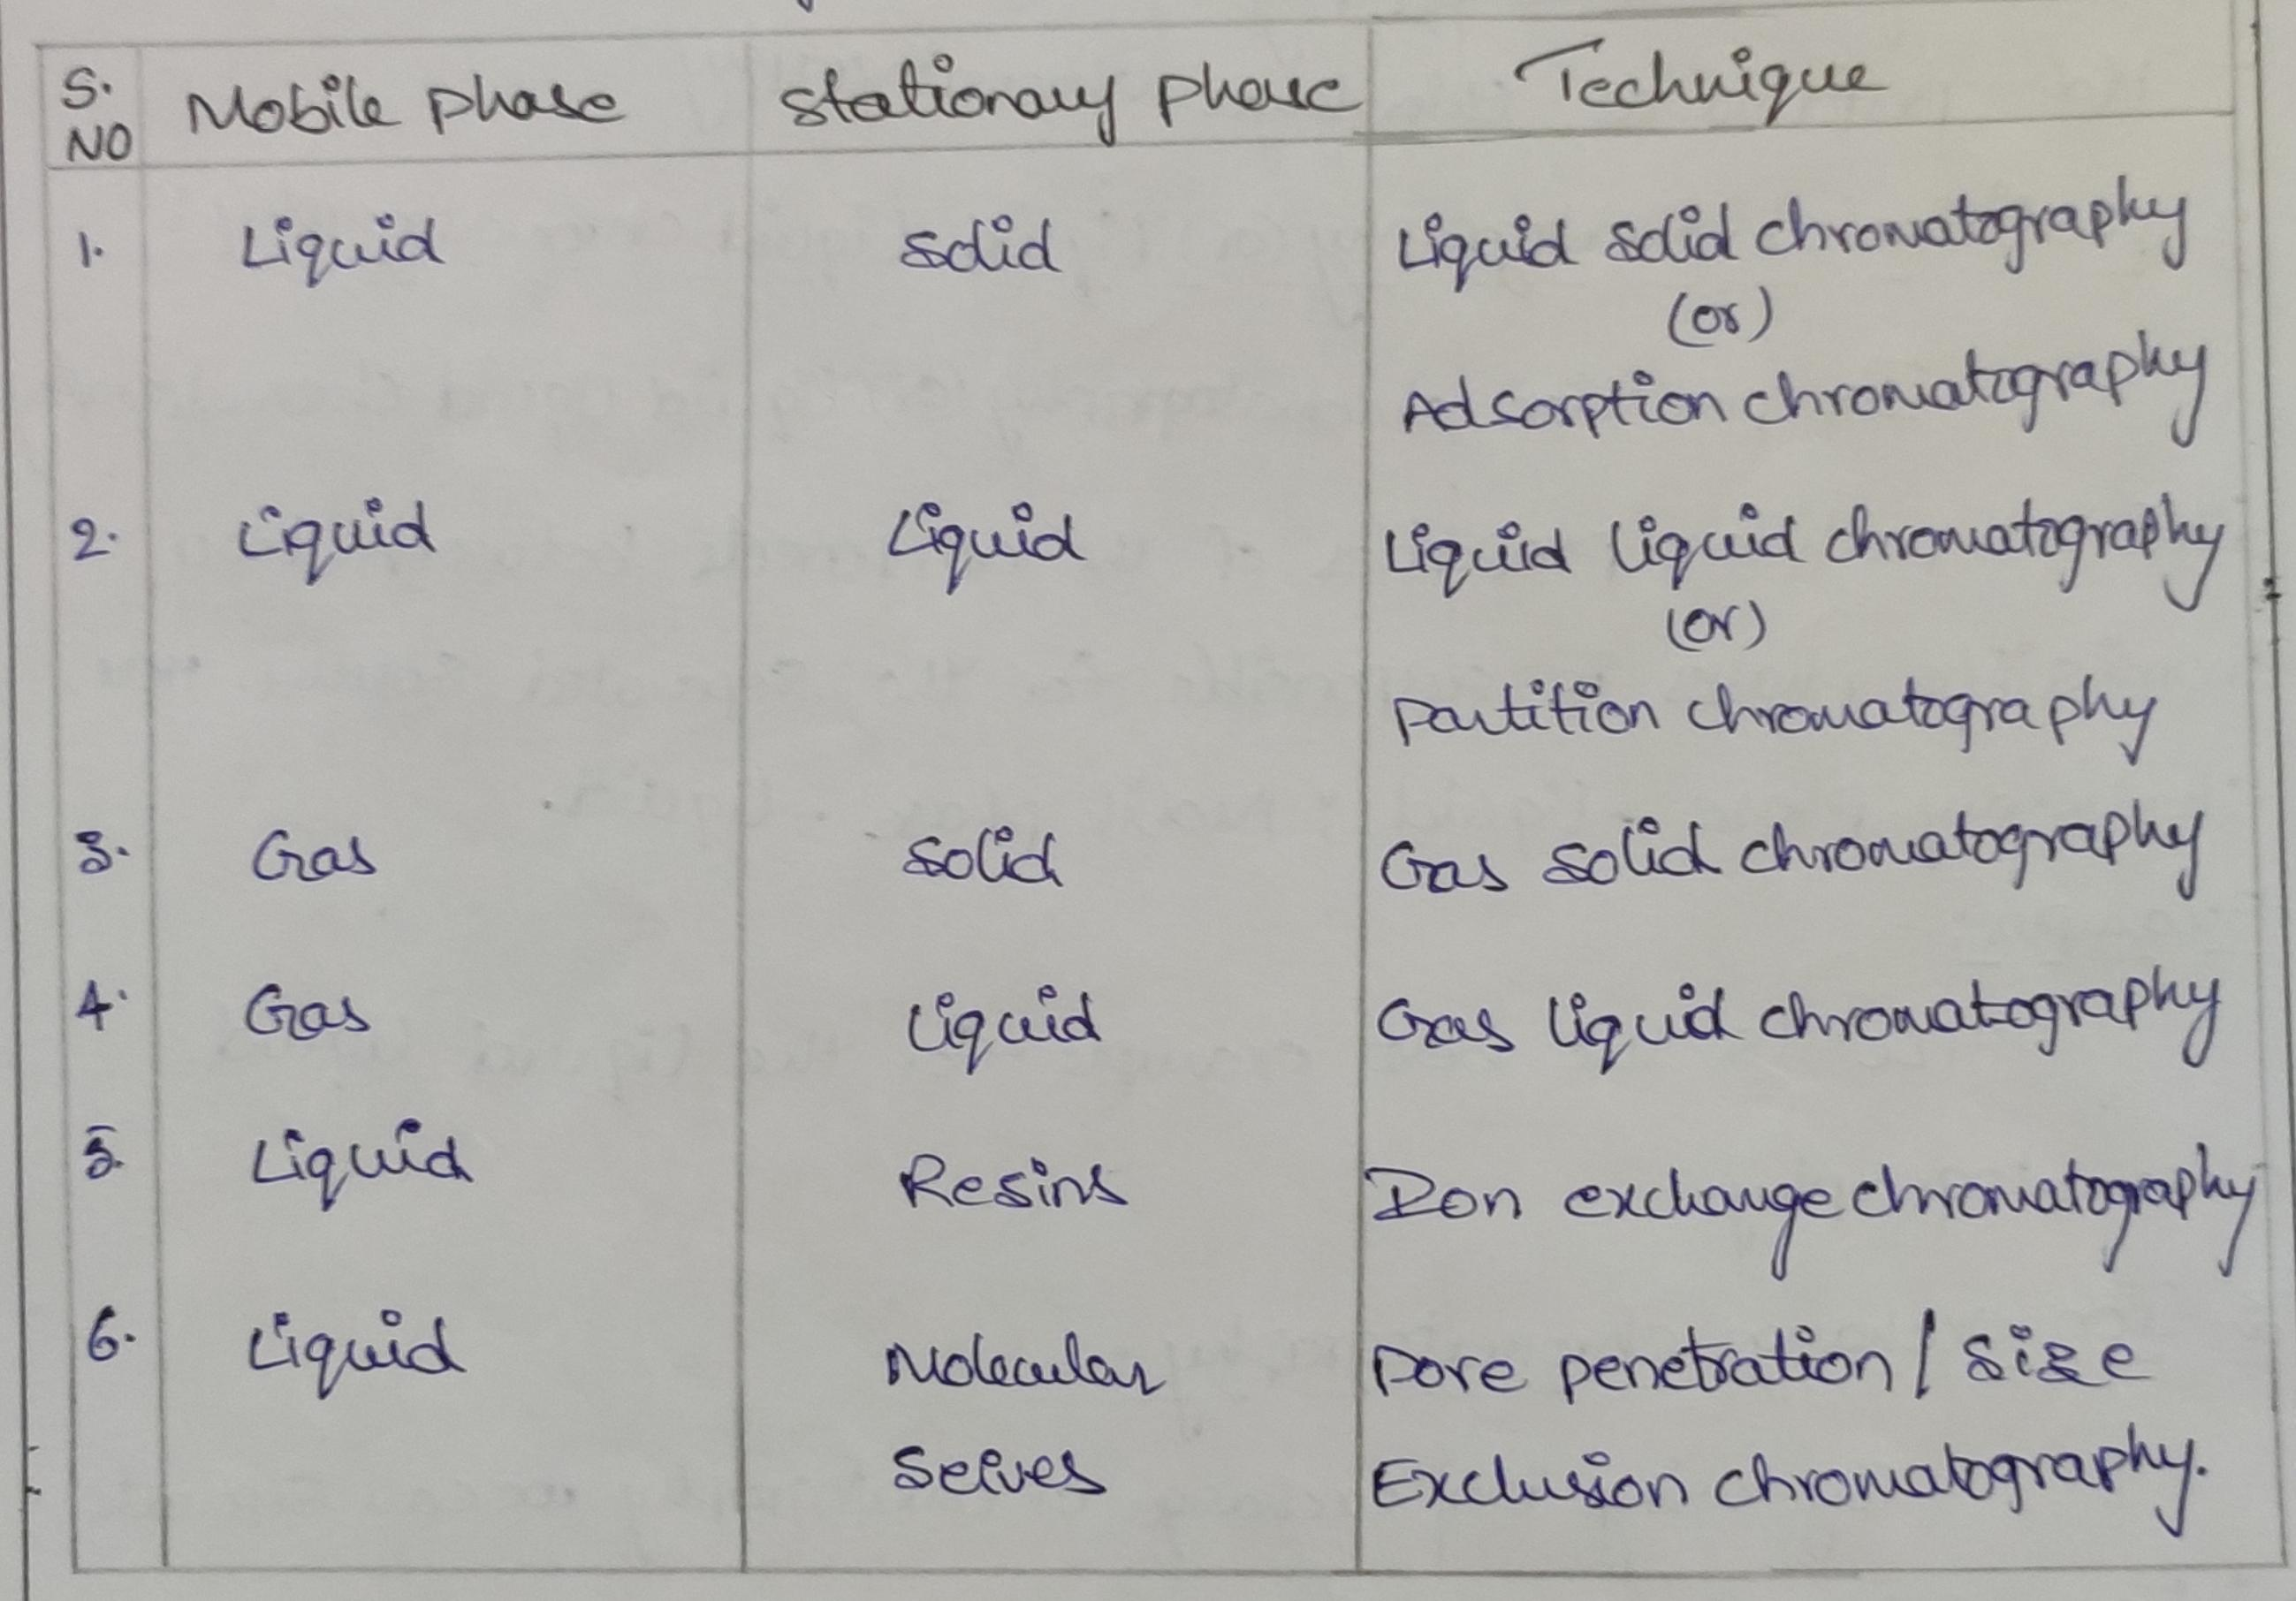 S. NO Mobile phase Stationary phase Technique
1. Liquid Solid Liquid solid chromatography
(or)
Adsorption chromatography
2. Liquid Liquid Liquid liquid chromatography
(or)
Partition chromatography
3. Gas Solid Gas solid chromatography
4. Gas Liquid Gas liquid chromatography
5. Liquid Resins Ion exchange chromatography
6. Liquid Molecular Pore penetration / Size
Seives Exclusion chromatography.